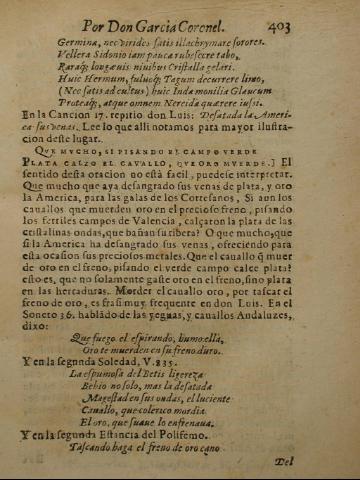 Por Don Garcia Coronel. 403
Germina, nec virides satis illachrymare sorores.
Vellera Sidonio iam pauca rubescere tabo,
Raraq; longævis nivibus Cristalla gelari.
Huic Hermum, fuluoq; Tagum decurrere limo,
(Nec satis ad cultus) huic Inda monilia Glaucum
Proteaq;, atque omnem Nereida quærere iussi.
En la Cancion 17. repitio don Luis: Desatada la Ameri-
ca sus venas. Lee lo que alli notamos para mayor ilustra-
cion deste lugar.
QVE MVCHO, SI PISANDO EL CAMPO VERDE
PLATA CALZO EL CAVALLO, QVE ORO MVERDE.] El
sentido desta oracion no está facil, puedese interpretar.
Que mucho que aya desangrado sus venas de plata, y oro
la America, para las galas de los Cortesanos, Si aun los
cauallos que muerden oro en el precioso freno, pisando
los fertiles campos de Valencia, calçaron la plata de las
cristalinas ondas, que bañan su ribera? O que mucho, que
si la America ha desangrado sus venas, ofreciendo para
esta ocasion sus preciosos metales. Que el cauallo q̃ muer
de oro en el freno, pisando el verde campo calce plata?
esto es, que no solamente gaste oro en el freno, sino plata
en las herraduras. Morder el cauallo oro, por tascar el
freno de oro, es frasi muy frequente en don Luis. En el
Soneto 36. hablãdo de las yeguas, y cauallos Andaluzes,
dixo:
Que fuego el espirando, humo ella,
Oro te muerden en su freno duro.
Y en la segunda Soledad, V. 835.
La espumosa del Betis ligereza
Bebio no solo, mas la desatada
Magestad en sus ondas, el luciente
Cauallo, que colerico mordia
El oro, que suaue lo enfrenaua.
Y en la segunda Estancia del Polifemo.
Tascando haga el freno de oro cano
Del